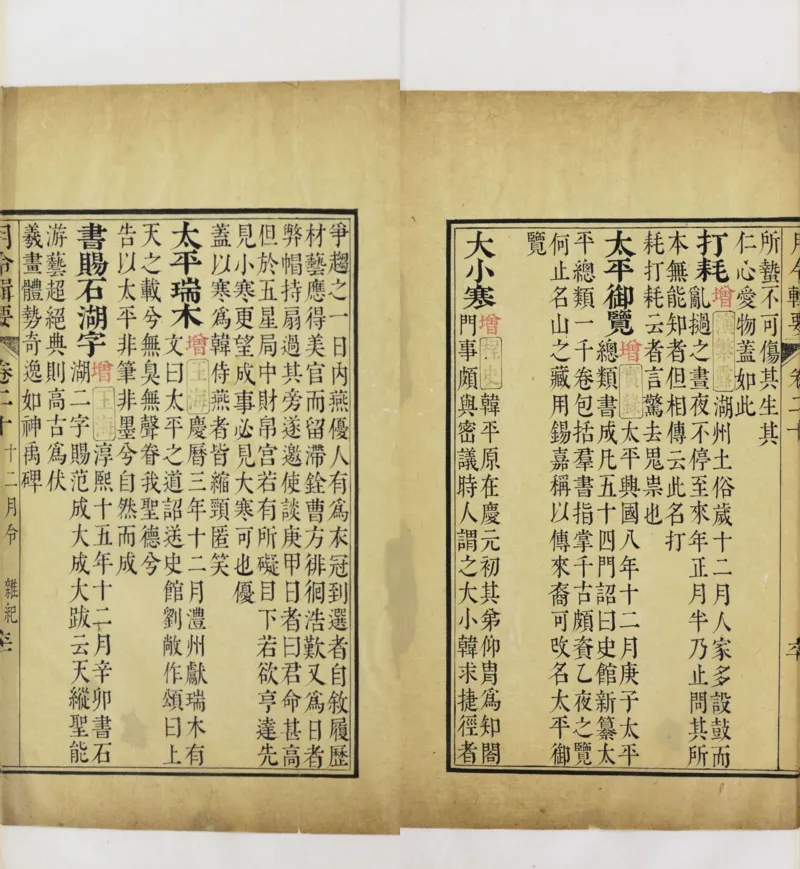 月令輯要 卷二十
所蟄不可傷其生其
仁心愛物蓋如此
打耗增湖州土俗歲十二月人家多設鼓而
亂撾之晝夜不停至來年正月半乃止問其所
本無能知者但相傳云此名打
耗打耗云者言驚去鬼祟也
太平御覽增實錄太平興國八年十二月庚子太平
總類書成凡五十四門詔曰史館新纂太
平總類一千卷包括羣書指掌千古頗資乙夜之覽
何止名山之藏用錫嘉稱以傳來裔可改名太平御
覽
大小寒增桯史韓平原在慶元初其弟仰胄爲知閤
門事頗與密議時人謂之大小韓求捷徑者
爭趨之一日內燕優人有爲衣冠到選者自敘履歷
材藝應得美官而留滯銓曹方徘徊浩歎又爲日者
弊帽持扇過其旁遂邀使談庚甲日者曰君命甚高
但於五星局中財帛宮若有所礙目下若欲亨達先
見小寒更望成事必見大寒可也優
蓋以寒爲韓侍燕者皆縮頸匿笑
太平瑞木增玉海慶曆三年十二月澧州獻瑞木有
文曰太平之道詔送史館劉敞作頌曰上
天之載兮無臭無聲眷我聖德兮
告以太平非筆非墨兮自然而成
書賜石湖字增玉海淳熙十五年十二月辛卯書石
湖二字賜范成大成大跋云天縱聖能
游藝超絕典則高古爲伏
羲畫體勢奇逸如神禹碑
月令輯要 卷二十 十二月令 雜紀